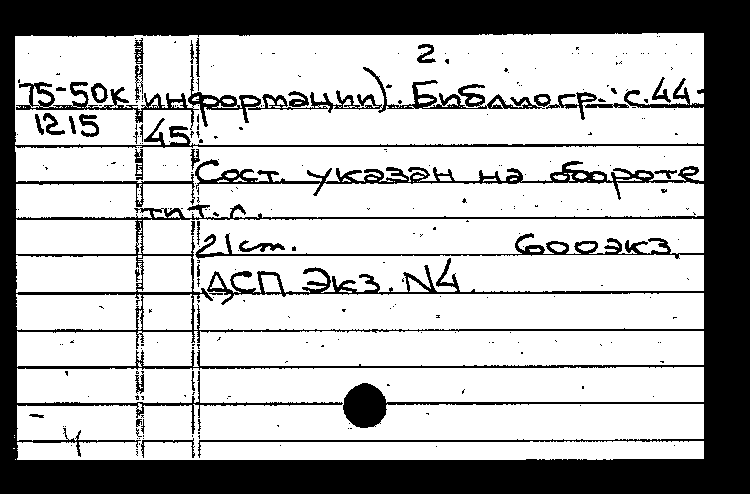 2.
75-50к информации). Библиогр.: с.44-
1215 45.
Сост. указан на обороте
тит. л.
21 см. 600 экз.
ДСП. Экз. N4.
4